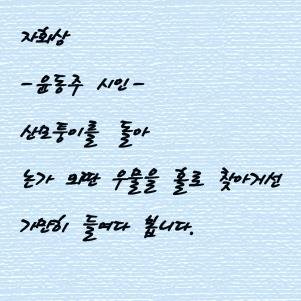 자화상
- 윤동주 시인 -
산모퉁이를 돌아
논가 외딴 우물을 홀로 찾아가선
가만히 들여다 봅니다.